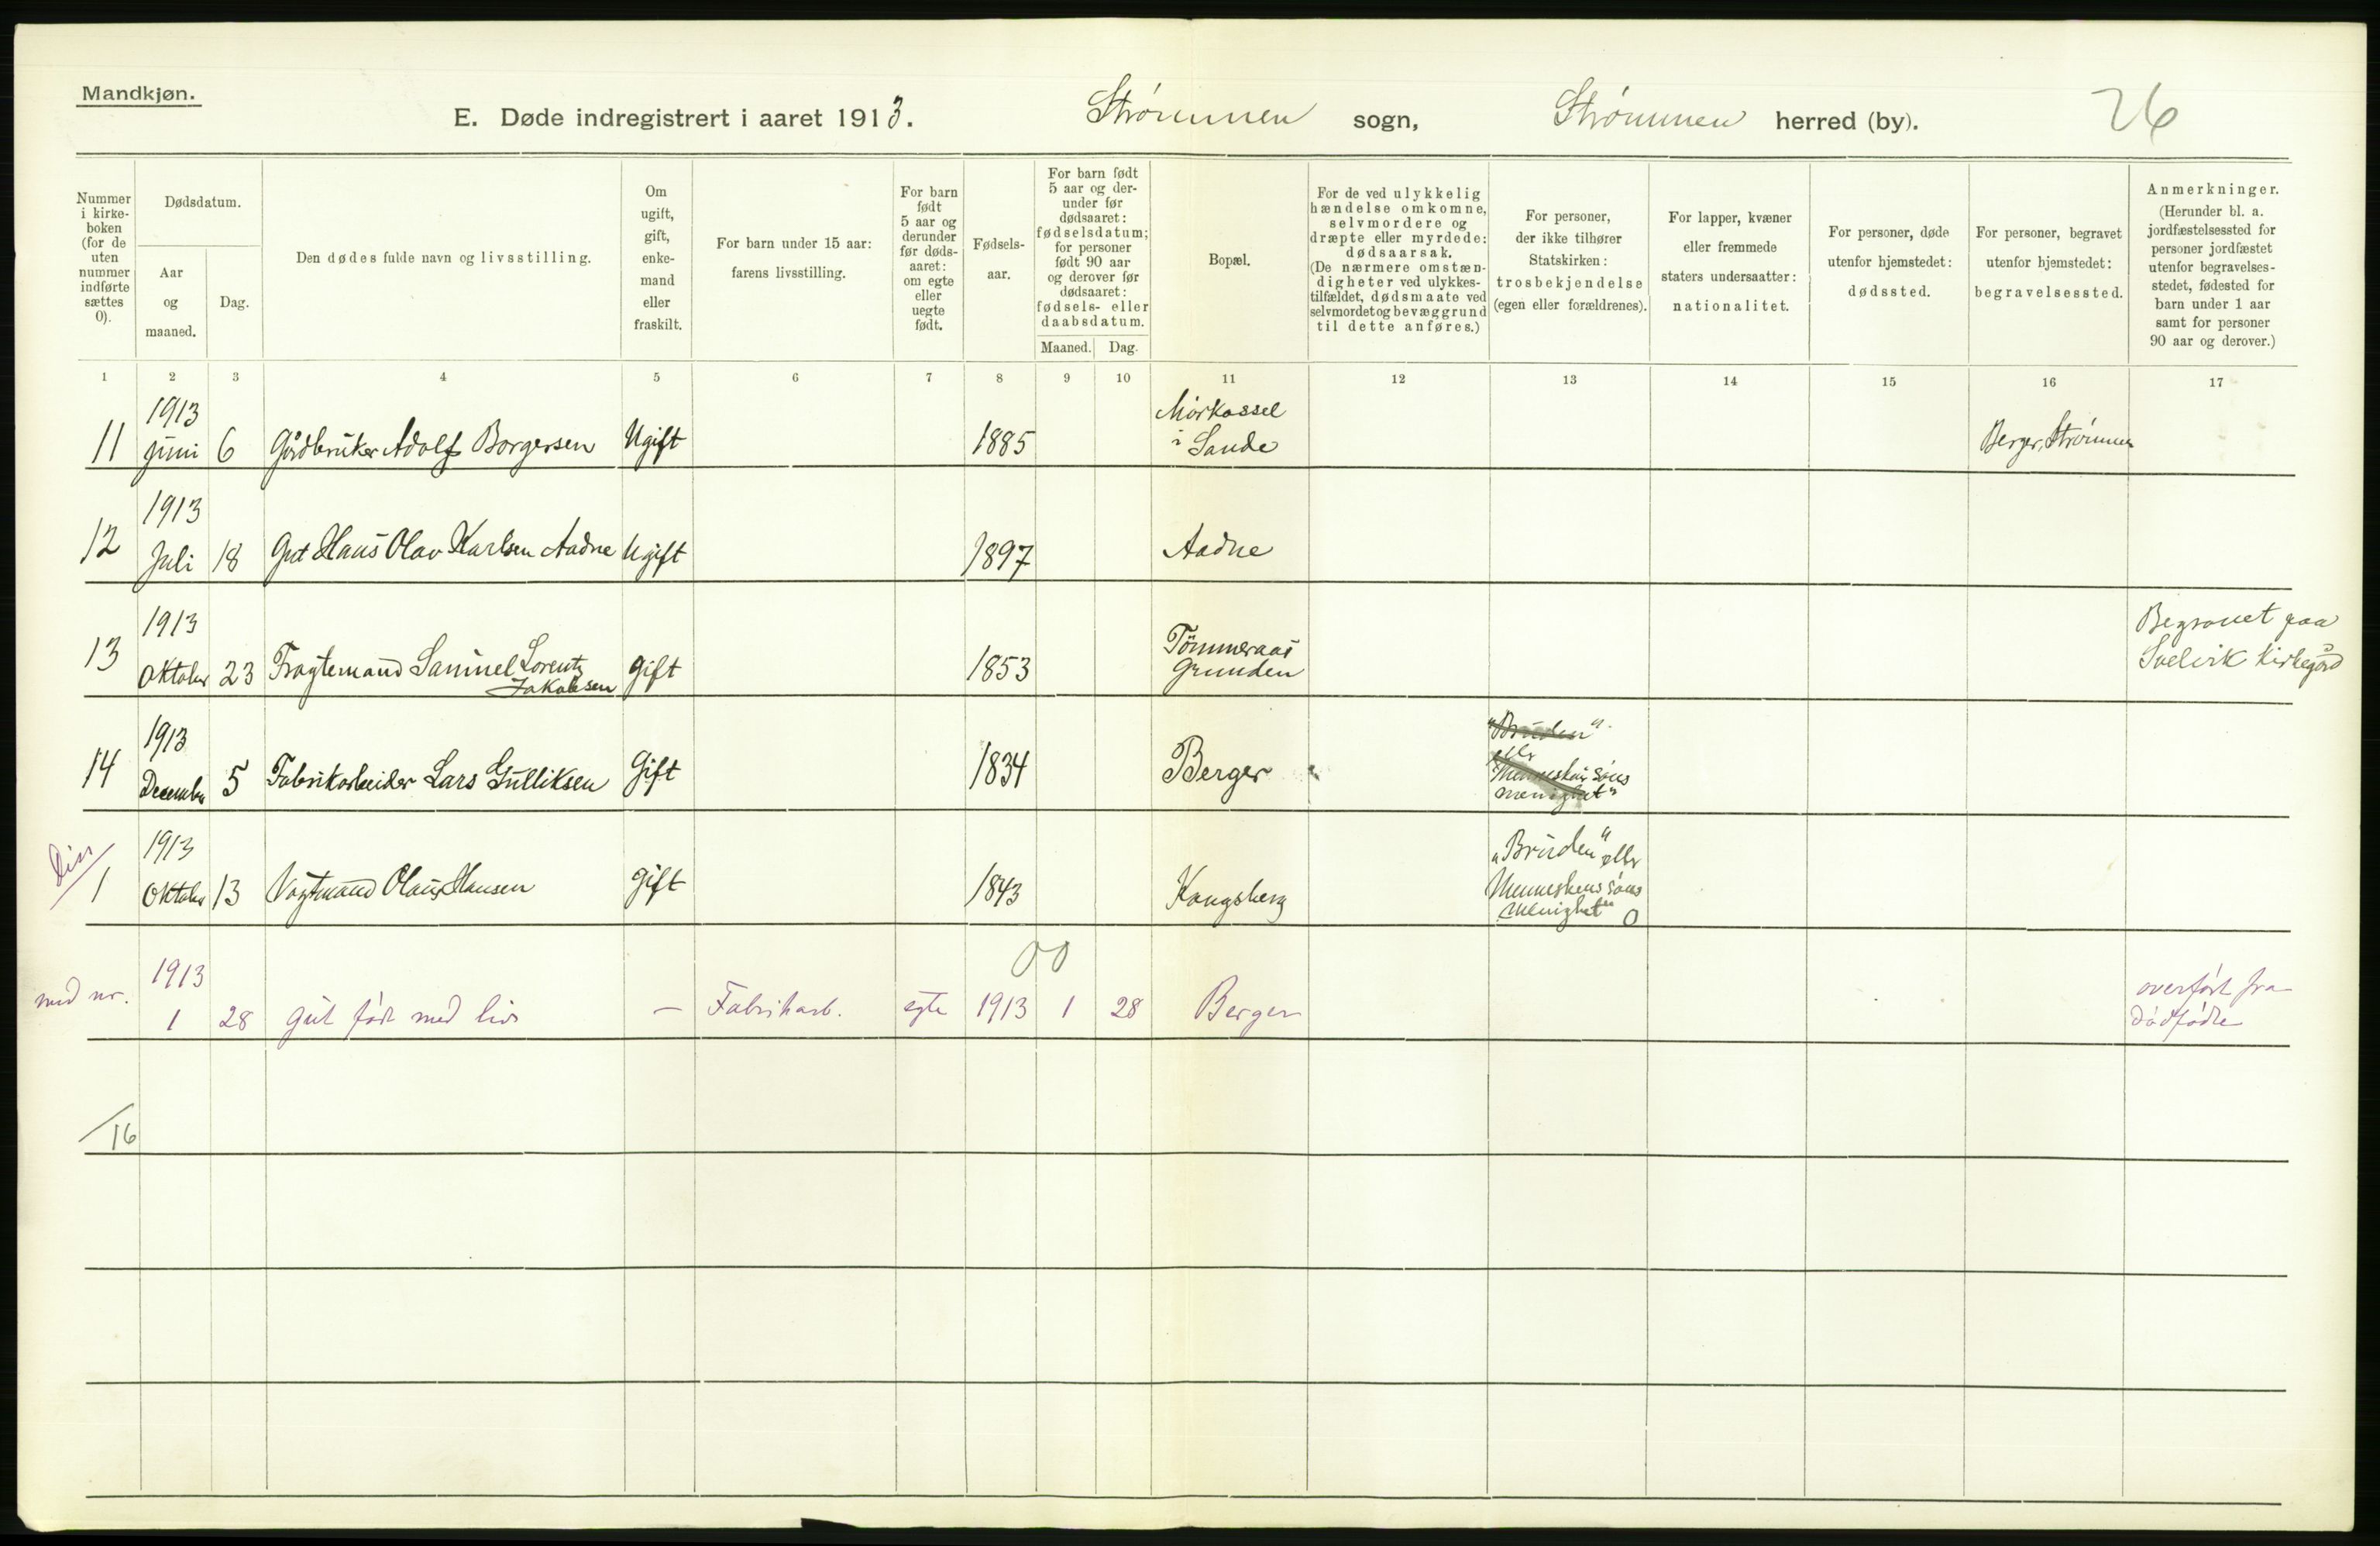 Mandkjøn.
E. Døde indregistrert i aaret 1913. Strømmen sogn, Strømmen herred (by). 26
Nummer i kirke-boken (for de uten nummer indførte sættes 0).
Dødsdatum.
Aar og maaned.
Dag.
Den dødes fulde navn og livsstilling.
Om ugift, gift, enke-mand eller fraskilt.
For barn under 15 aar: farens livsstilling.
For barn født 5 aar og derunder før døds-aaret: om egte eller uegte født.
Fødsels-aar.
For barn født 5 aar og der-under før dødsaaret: fødselsdatum; for personer født 90 aar og derover før dødsaaret: fødsels- eller daabsdatum.
Maaned. Dag.
Bopæl.
For de ved ulykkelig hændelse omkomne, selvmordere og dræpte eller myrdede: dødsaarsak. (De nærmere omstæn-digheter ved ulykkes-tilfældet, dødsmaate ved selvmordet og bevæggrund til dette anføres.)
For personer, der ikke tilhører Statskirken: trosbekjendelse (egen eller forældrenes).
For lapper, kvæner eller fremmede staters undersaatter: nationalitet.
For personer, døde utenfor hjemstedet: dødssted.
For personer, begravet utenfor hjemstedet: begravelsessted.
Anmerkninger. (Herunder bl. a. jordfæstelsessted for personer jordfæstet utenfor begravelses-stedet, fødested for barn under 1 aar samt for personer 90 aar og derover.)
1 2 3 4 5 6 7 8 9 10 11 12 13 14 15 16 17
11 1913 juni 6 Gårdbruker Adolf Borgersen Ugift 1885 Mørkassel i Sande Berger, Strømmen
12 1913 Juli 18 Gut Hans Olav Karlsen Aadne Ugift 1897 Aadne
13 1913 Oktober 23 Fragtemand Samuel Lorentz Jakobsen gift 1853 Tømmeraas Grunden Begravet paa Svelvik Kirkegård
14 1913 December 5 Fabrikarbeider Lars Gulliksen Gift 1834 Berger "Bruden" eller Menneskens søns menighet"
Diss 1 1913 Oktober 13 Vagtmand Olaus Hansen gift 1843 Kongsberg "Bruden" eller Menneskens søns menighet" 0
00
med nr. 1913 1 28 gut født med liv — Fabrikarb. egte 1913 1 28 Berger overført fra dødfødte
16